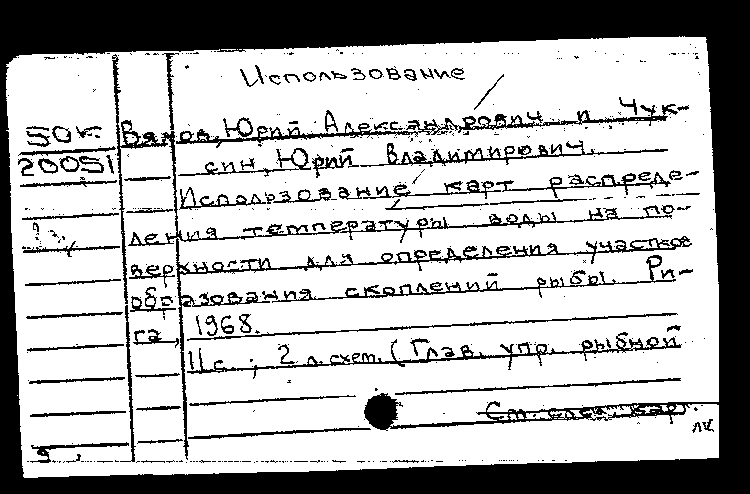 Использование
50к Вялов, Юрий Александрович и Чук-
20051 син, Юрий Владимирович.
Использование карт распреде-
ления температуры воды на по-
верхности для определения участков
образования скоплений рыбы. Ри-
га, 1968.
11 с.; 2 л. схем. (Глав. упр. рыбной
См. след. кар.
лк